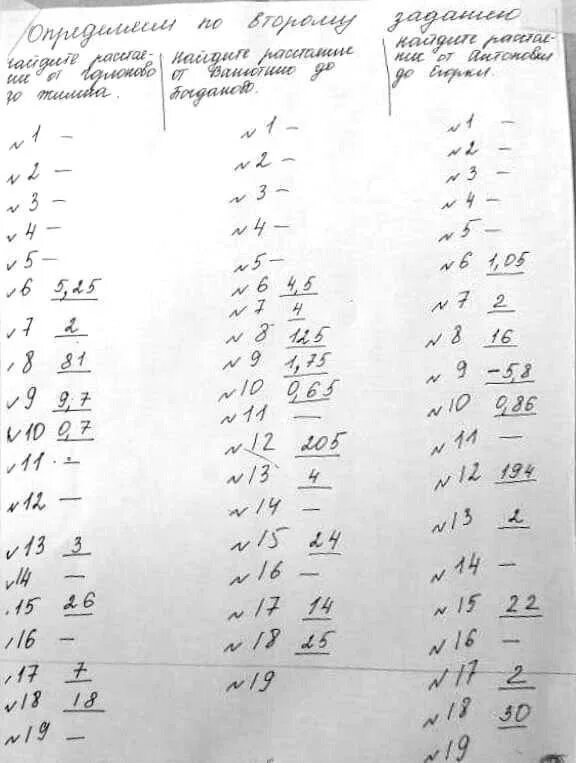 Определяем по второму заданию
найдите расстоя-
ние от
до Жилина.
№1 –
№2 –
№3 –
№4 –
№5 –
№6 5,25
№7 2
№8 81
№9 9,7
№10 0,7
№11 –
№12 –
№13 3
№14 –
№15 26
№16 –
№17 7
№18 18
№19 –
найдите расстояние
от Ванютино до
Богданово.
№1 –
№2 –
№3 –
№4 –
№5 –
№6 4,5
№7 4
№8 125
№9 1,75
№10 0,65
№11 –
№12 205
№13 4
№14 –
№15 24
№16 –
№17 14
№18 25
№19
найдите расстоя-
ние от Антоновки
до Егорки.
№1 –
№2 –
№3 –
№4 –
№5 –
№6 1,05
№7 2
№8 16
№9 –5,8
№10 0,86
№11 –
№12 194
№13 2
№14 –
№15 22
№16 –
№17 2
№18 30
№19